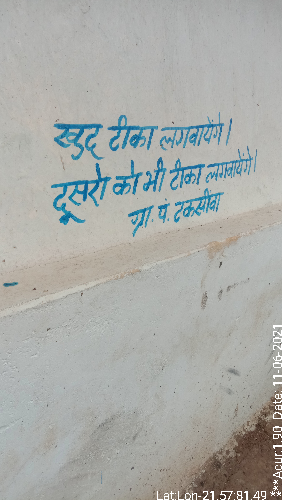 खुद टीका लगवायेंगे।
दूसरों को भी टीका लगवायेंगे।
ग्रा. पं. टकसीवा
Lat:Lon-21.57:81.49
***Acur:1.90 Date: 11-06-2021